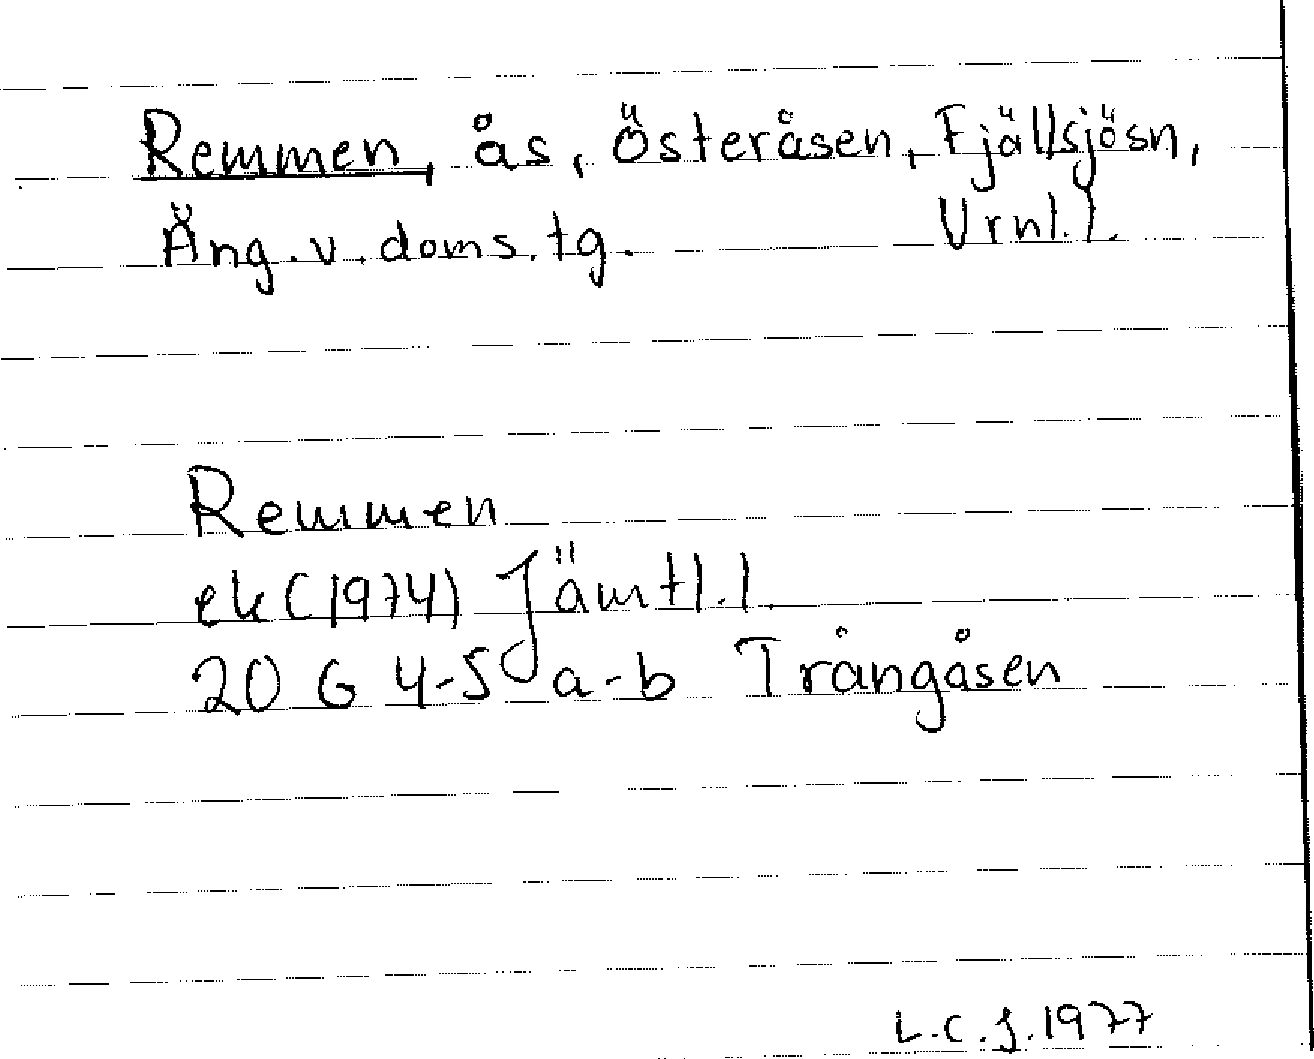 Remmen, ås, Österåsen, Fjällsjösn,
Äng. v. doms. tg. Vrnl. l.
Remmen
ek (1974) Jämtl. l.
20 G 4-5 a-b Trångåsen
L.C.J. 1977